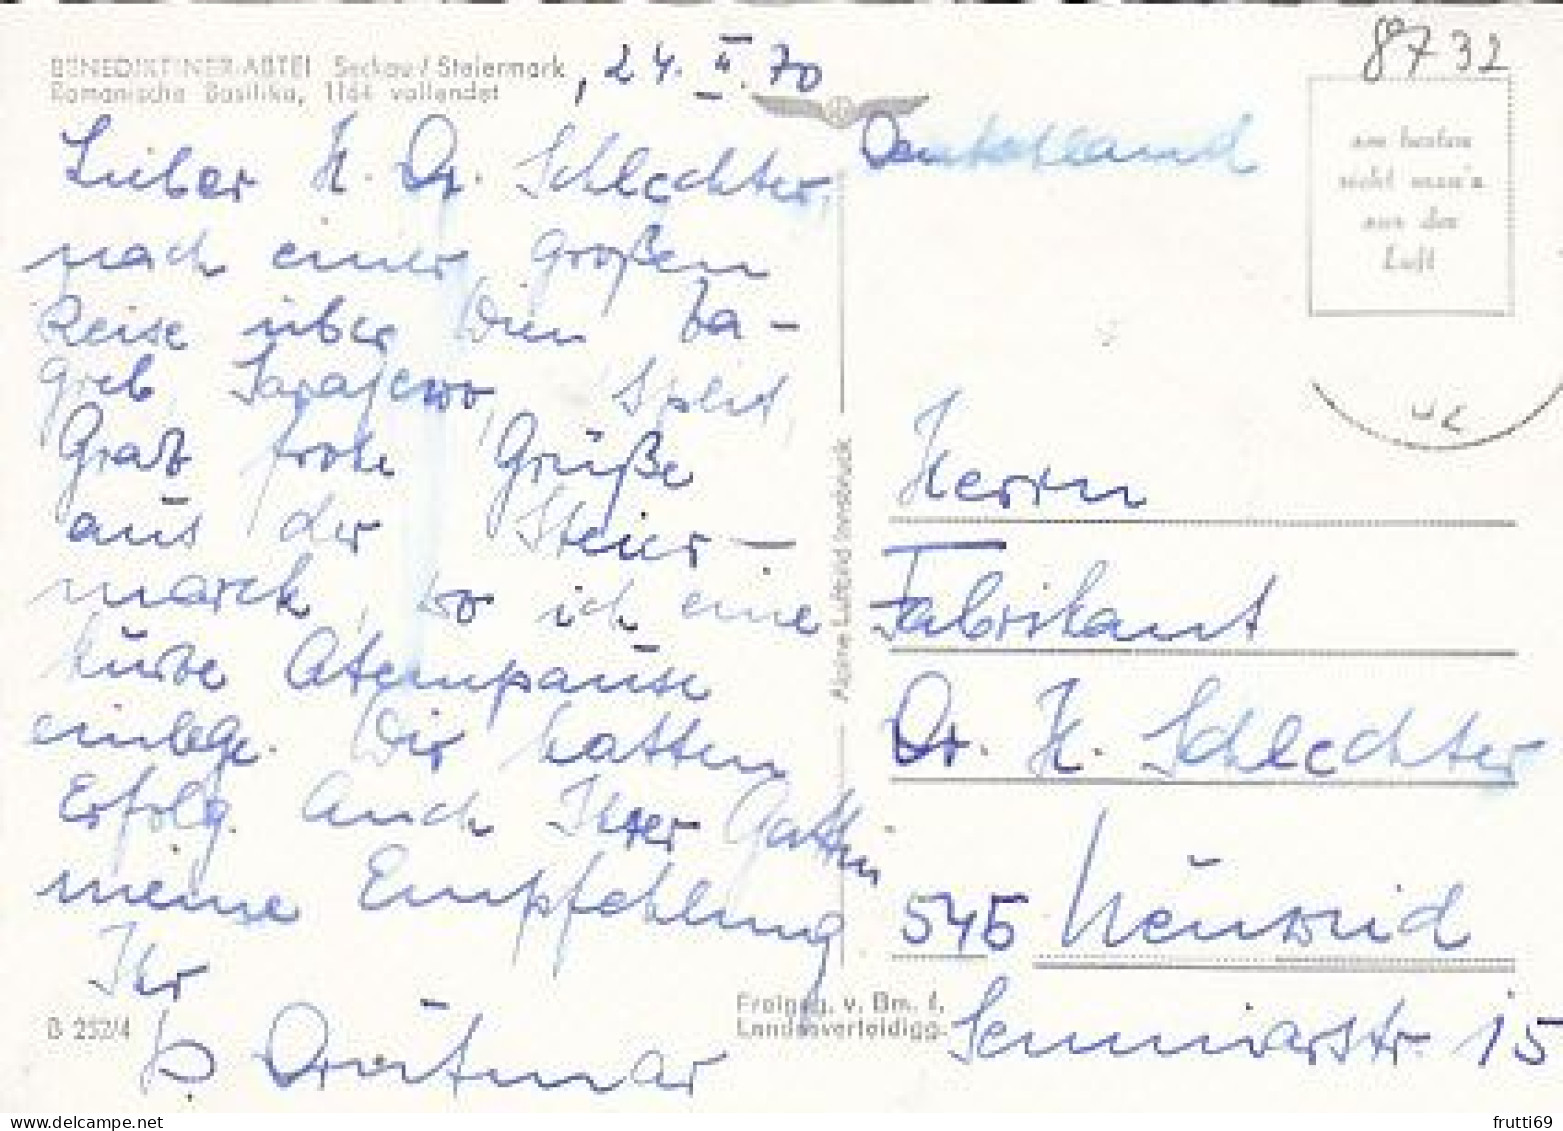 8732
BENEDIKTINER-ABTEI Seckau / Steiermark
Romanische Basilika, 1164 vollendet
, 24. II. 70
Lieber H. Dr. Schlechter,
nach einer großen
Reise über Wien Za-
greb, Sarajewo, Split,
Graz frohe Grüße
aus der Steier-
mark, wo ich eine
kurze Atempause
einlege. Wir hatten
Erfolg. Auch Ihrer Gattin
meine Empfehlung
Ihr
D 252/4
Alpine Luftbild Innsbruck
Freigeg. v. Bm. f.
Landesverteidigg.
am besten
sieht man's
aus der
Luft
Deutschland
Herrn
Fabrikant
Dr. H. Schlechter
545 Neuwied
Seminarstr. 15
frutti69